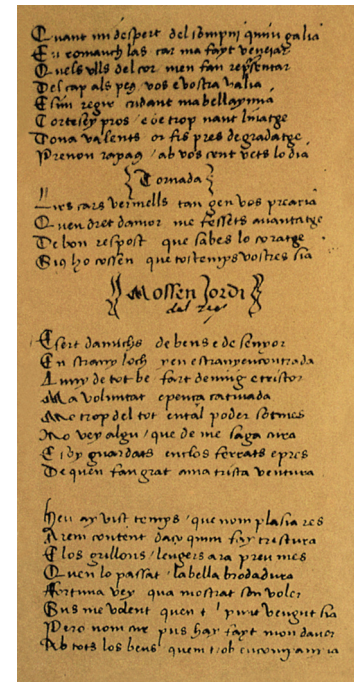 Quant mi despert del sompni qui mi galia
En romanch las car ma fayt vençiar
Quels ulls del cor men fan representar
Del cap als peus vos e vostra valia
E sim regir cudant ma bellaymia
Cortes e pros e de trop naut linatge
Dona valents
Prenon ab vos cent vets lo dia
Tornada
Lirs cars vermells tan gen vos prearia
Quen dret damor me fessets auantatge
De bon respost que sabes lo coratge
ho cossen que tostemps vostres sia
Mossen Jordi
del rey
Esert damichs de bens e de senyor
En strany loch y en estranyencontrada
Luny de tot be fart denuig e tristor
Ma voluntat e pença catiuada
Me trop del tot en tal poder sotmes
No vey algu que de me saga cura
E soy guardats enclos ferrats e pres
De quen fau grat a ma trista ventura
Heu ay vist temps que nom plasia res
Arem content daço quim fay tristura
E los grillons leugers ara preu mes
Quen lo passat la bella brodadura
Fortuna vey qua mostrat son voler
Sus me volent quen vengut sia
Pero nom cur pus hay fayt mon dauer
Ab tots los bons quem trob en companyia